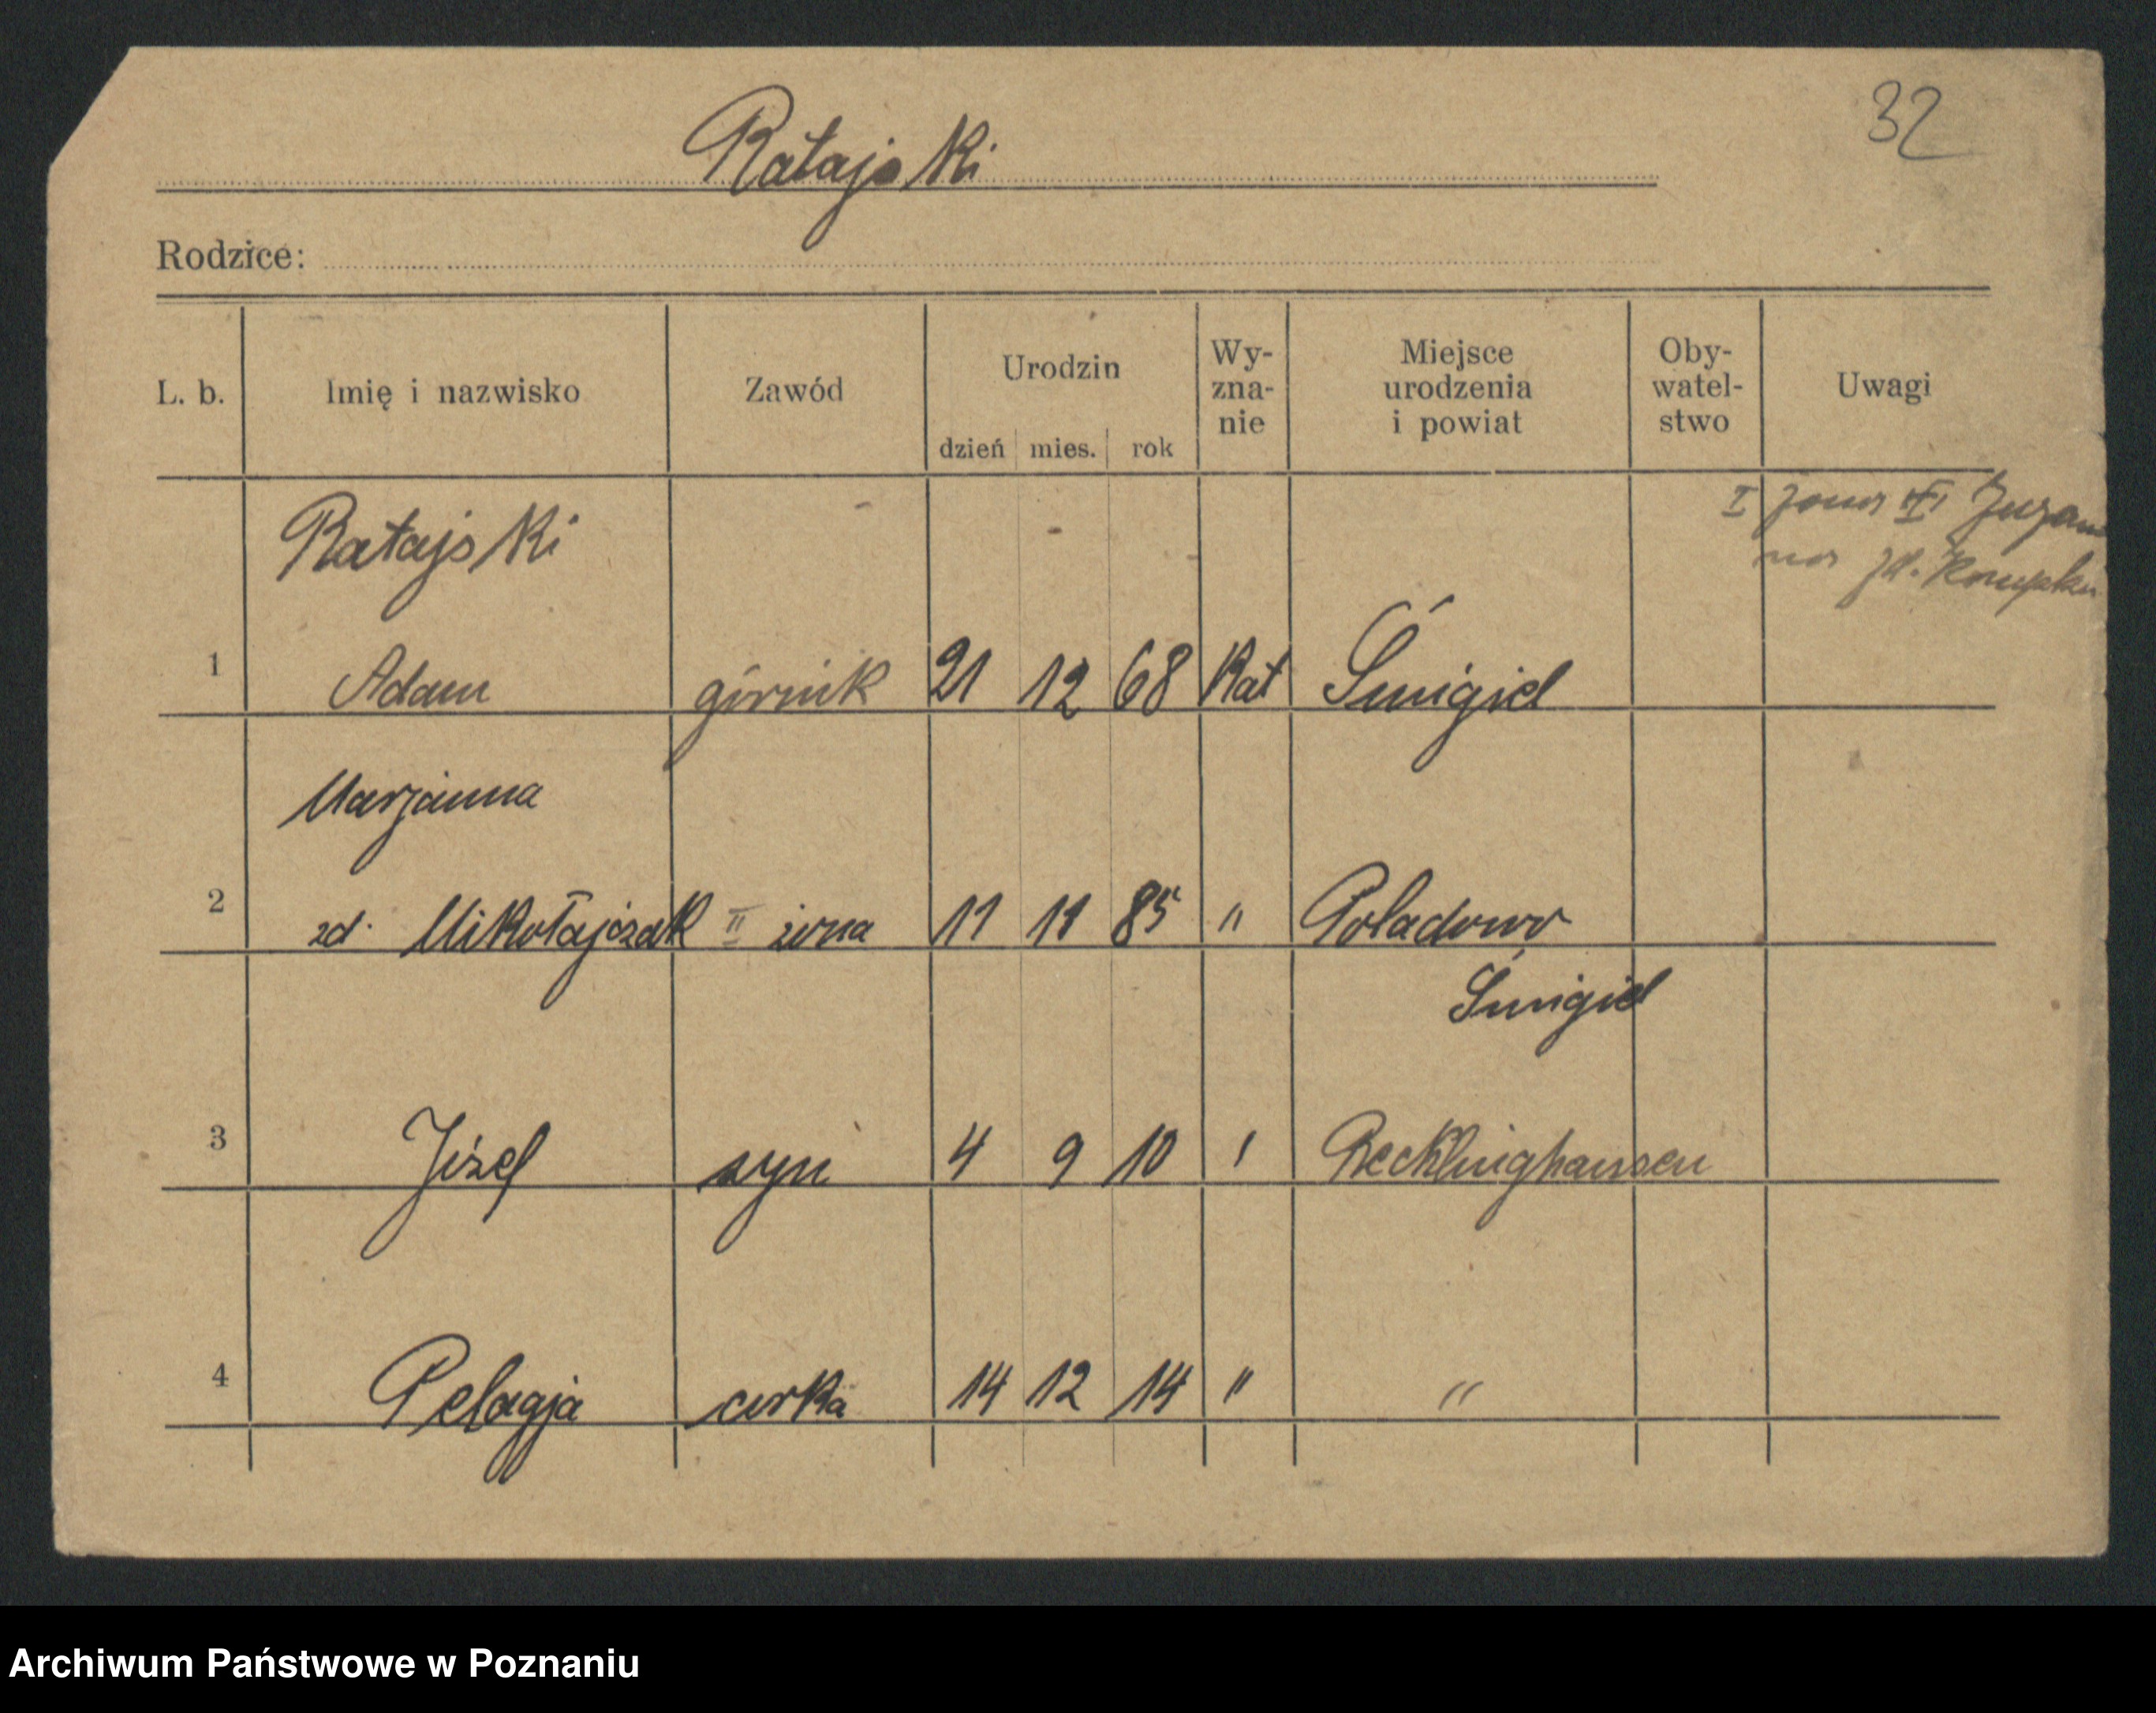 32
Ratajski
Rodzice:
L. b. Imię i nazwisko Zawód Urodzin dzień mies. rok Wy-zna-nie Miejsce urodzenia i powiat Oby-watel-stwo Uwagi
I żona
zd.
Ratajski
1 Adam górnik 21 12 68 Kat Śmigiel
Marjanna
2 zd. Mikołajczak II żona 11 11 85 " Poladowo
Śmigiel
3 Józef syn 4 9 10 ' Recklinghausen
4 Pelagja curka 14 12 14 " "
Archiwum Państwowe w Poznaniu